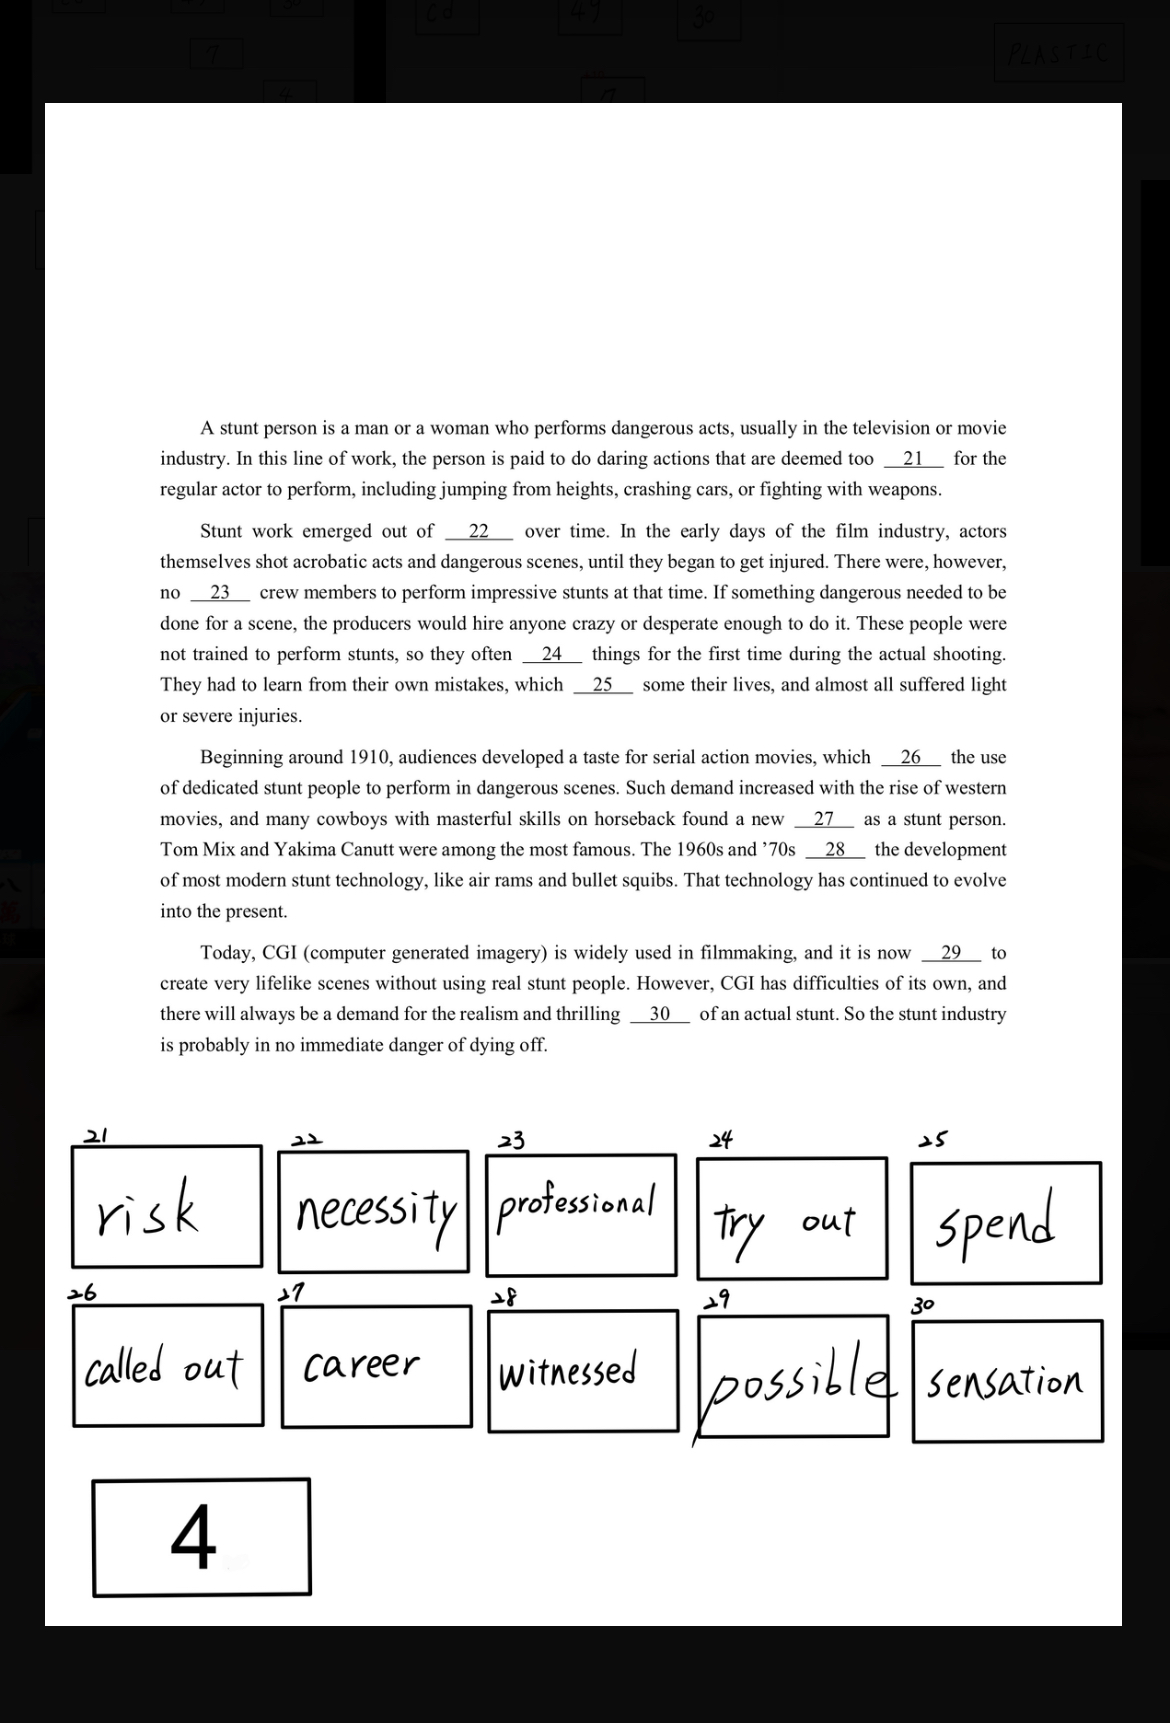 cd 49 30
7
PLASTIC
A stunt person is a man or a woman who performs dangerous acts, usually in the television or movie
industry. In this line of work, the person is paid to do daring actions that are deemed too 21 for the
regular actor to perform, including jumping from heights, crashing cars, or fighting with weapons.
Stunt work emerged out of 22 over time. In the early days of the film industry, actors
themselves shot acrobatic acts and dangerous scenes, until they began to get injured. There were, however,
no 23 crew members to perform impressive stunts at that time. If something dangerous needed to be
done for a scene, the producers would hire anyone crazy or desperate enough to do it. These people were
not trained to perform stunts, so they often 24 things for the first time during the actual shooting.
They had to learn from their own mistakes, which 25 some their lives, and almost all suffered light
or severe injuries.
Beginning around 1910, audiences developed a taste for serial action movies, which 26 the use
of dedicated stunt people to perform in dangerous scenes. Such demand increased with the rise of western
movies, and many cowboys with masterful skills on horseback found a new 27 as a stunt person.
Tom Mix and Yakima Canutt were among the most famous. The 1960s and ’70s 28 the development
of most modern stunt technology, like air rams and bullet squibs. That technology has continued to evolve
into the present.
Today, CGI (computer generated imagery) is widely used in filmmaking, and it is now 29 to
create very lifelike scenes without using real stunt people. However, CGI has difficulties of its own, and
there will always be a demand for the realism and thrilling 30 of an actual stunt. So the stunt industry
is probably in no immediate danger of dying off.
21 22 23 24 25
risk necessity professional try out spend
26 27 28 29 30
called out career witnessed possible sensation
4